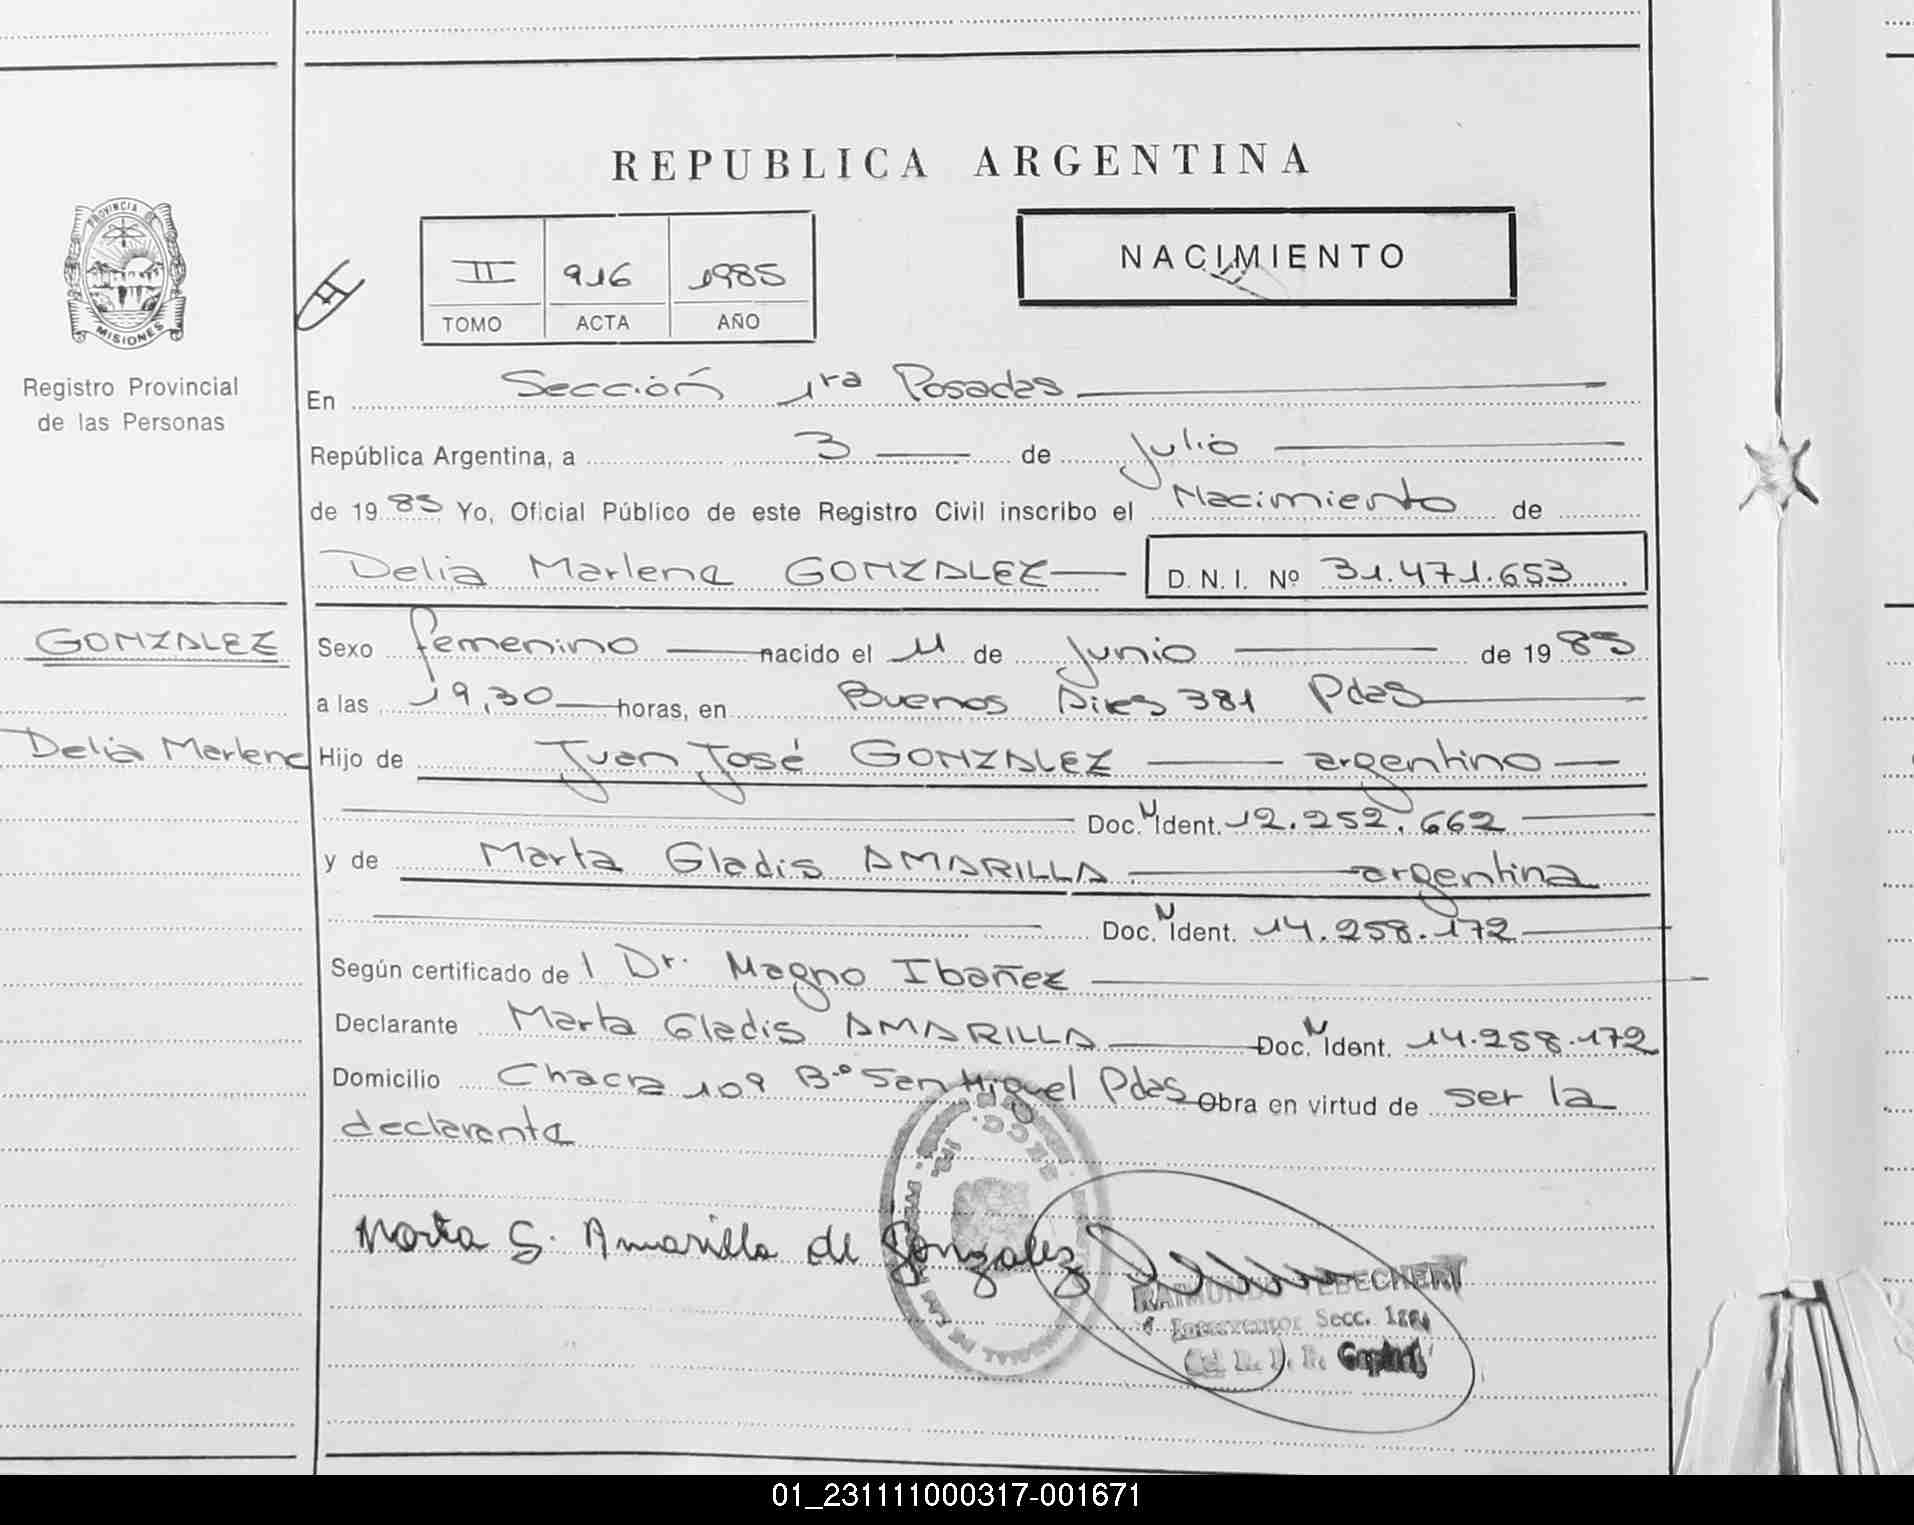 REPUBLICA ARGENTINA
PROVINCIA DE
MISIONES
Registro Provincial
de las Personas
II 916 1985
TOMO ACTA AÑO
NACIMIENTO
En Sección 1ra Posadas
República Argentina, a 3 de Julio
de 1985 Yo, Oficial Público de este Registro Civil inscribo el Nacimiento de
Delia Marlene GONZALEZ D. N. I. Nº 31.471.653
GONZALEZ
Delia Marlene
Sexo femenino nacido el 11 de Junio de 1985
a las 19,30 horas, en Buenos Aires 381 Pdas
Hijo de Juan José GONZALEZ argentino
Doc. N Ident. 12.252.662
y de Marta Gladis AMARILLA argentina
Doc. N Ident. 14.258.172
Según certificado de l Dr. Magno Ibañez
Declarante Marta Gladis AMARILLA Doc. N Ident. 14.258.172
Domicilio Chacra 109 B.º San Miguel Pdas Obra en virtud de ser la
declarante
Marta G. Amarilla de Gonzalez
Interventor Secc. 1ra
01_231111000317-001671